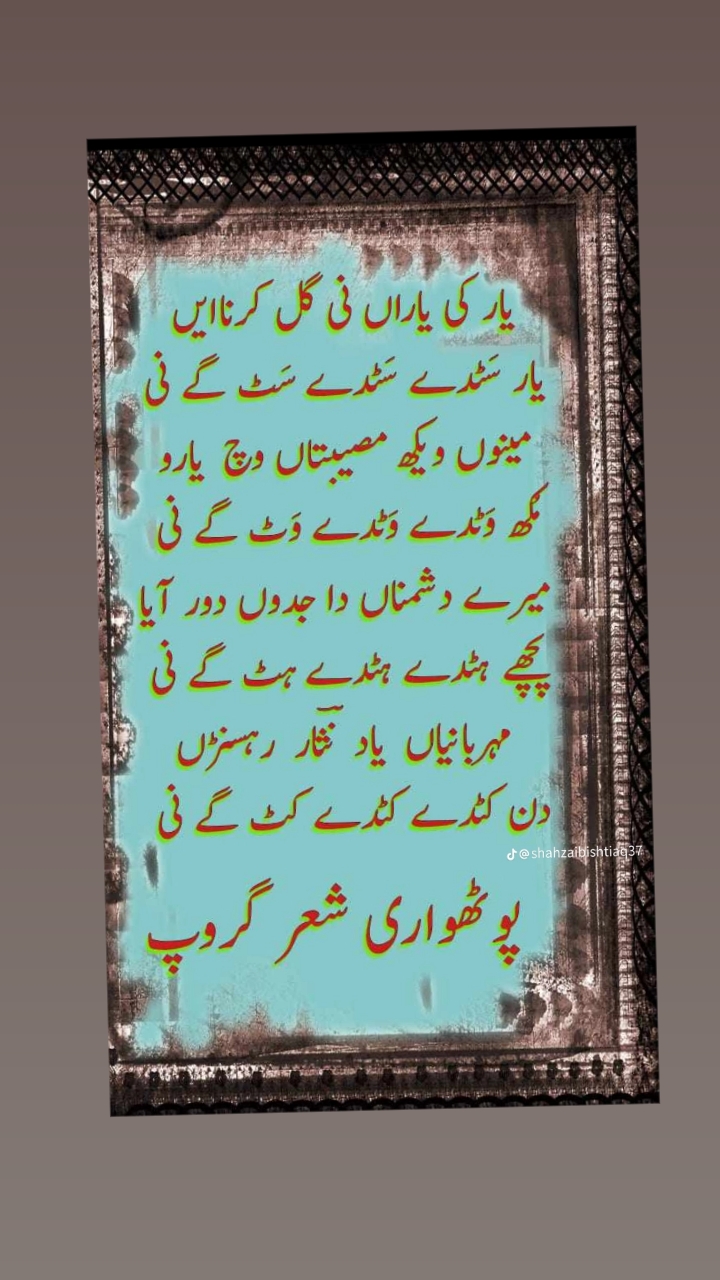 یار کی یاراں نی گل کرناایں
یار سَٹدے سَٹدے سَٹ گے نی
مینوں ویکھ مصیبتاں وچ یارو
مُکھ وَٹدے وَٹدے وَٹ گے نی
میرے دشمناں دا جدوں دور آیا
پچھے ہٹدے ہٹدے ہٹ گے نی
مہربانیاں یاد نثار رہسنڑں
دن کٹدے کٹدے کٹ گے نی
@shahzaibishtiaq37
پوٹھواری شعر گروپ